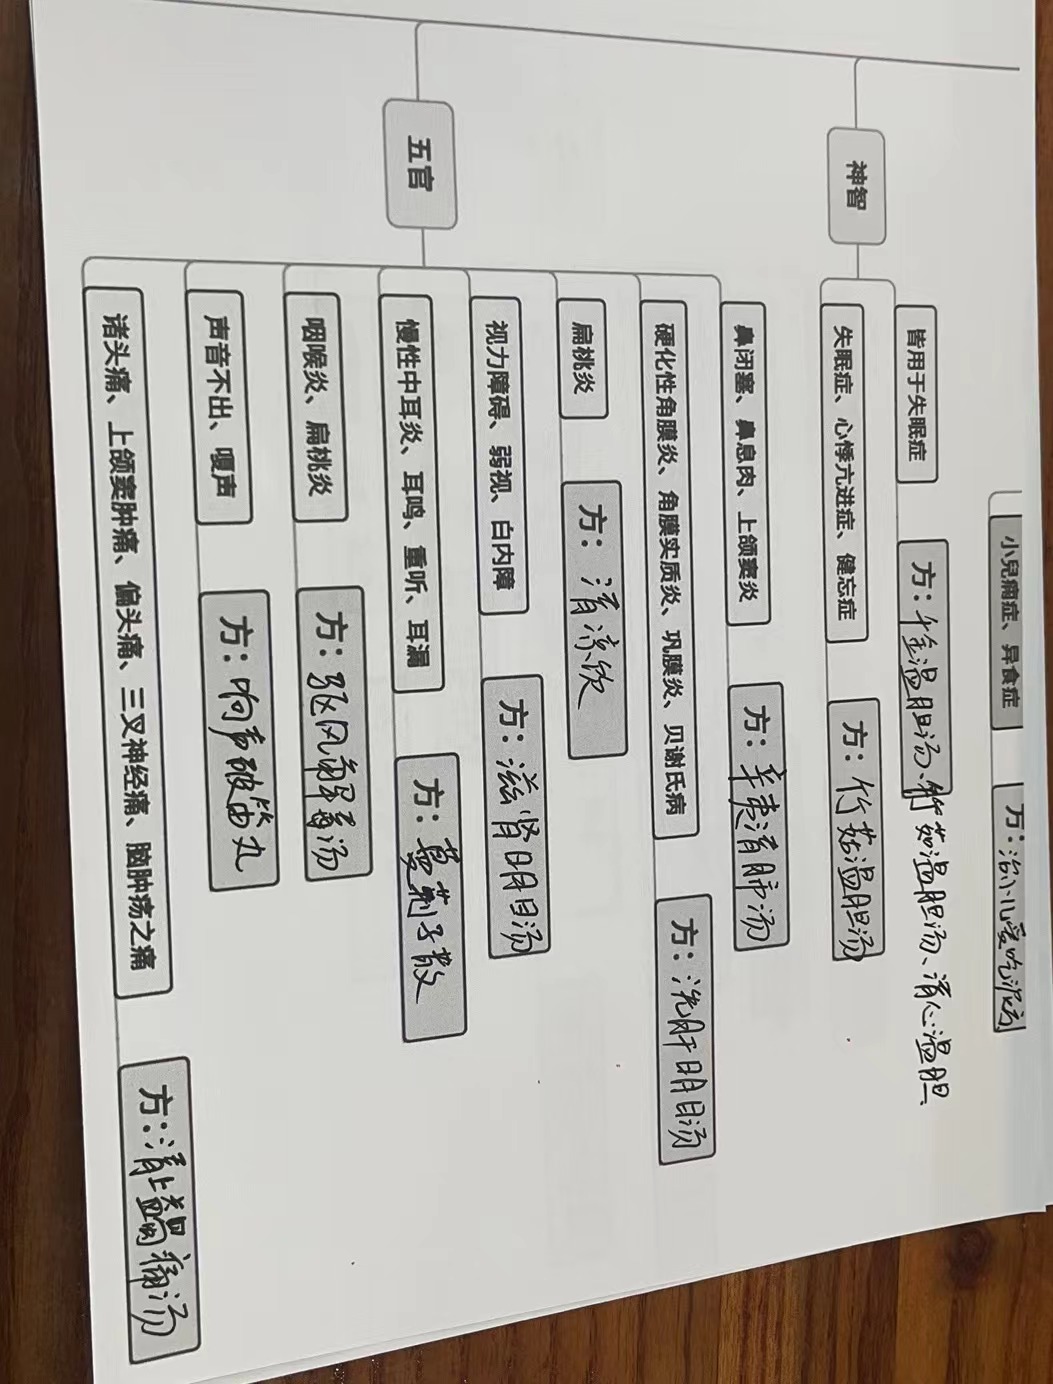 小兒痫症、异食症
方：治小儿爱吃泥方
神智
皆用于失眠症
方：千金温胆汤、竹茹温胆汤、清心温胆、
失眠症、心悸亢进症、健忘症
方：竹茹温胆汤
五官
鼻闭塞、鼻息肉、上颌窦炎
方：辛夷清肺汤
硬化性角膜炎、角膜实质炎、巩膜炎、贝谢氏病
方：洗肝明目汤
扁桃炎
方：清凉饮
视力障碍、弱视、白内障
方：滋肾明目汤
慢性中耳炎、耳鸣、重听、耳漏
方：蔓荆子散
咽喉炎、扁桃炎
方：驱风解毒汤
声音不出、嗄声
方：响声破笛丸
诸头痛、上颌窦肿痛、偏头痛、三叉神经痛、脑肿疡之痛
方：清上蠲痛汤